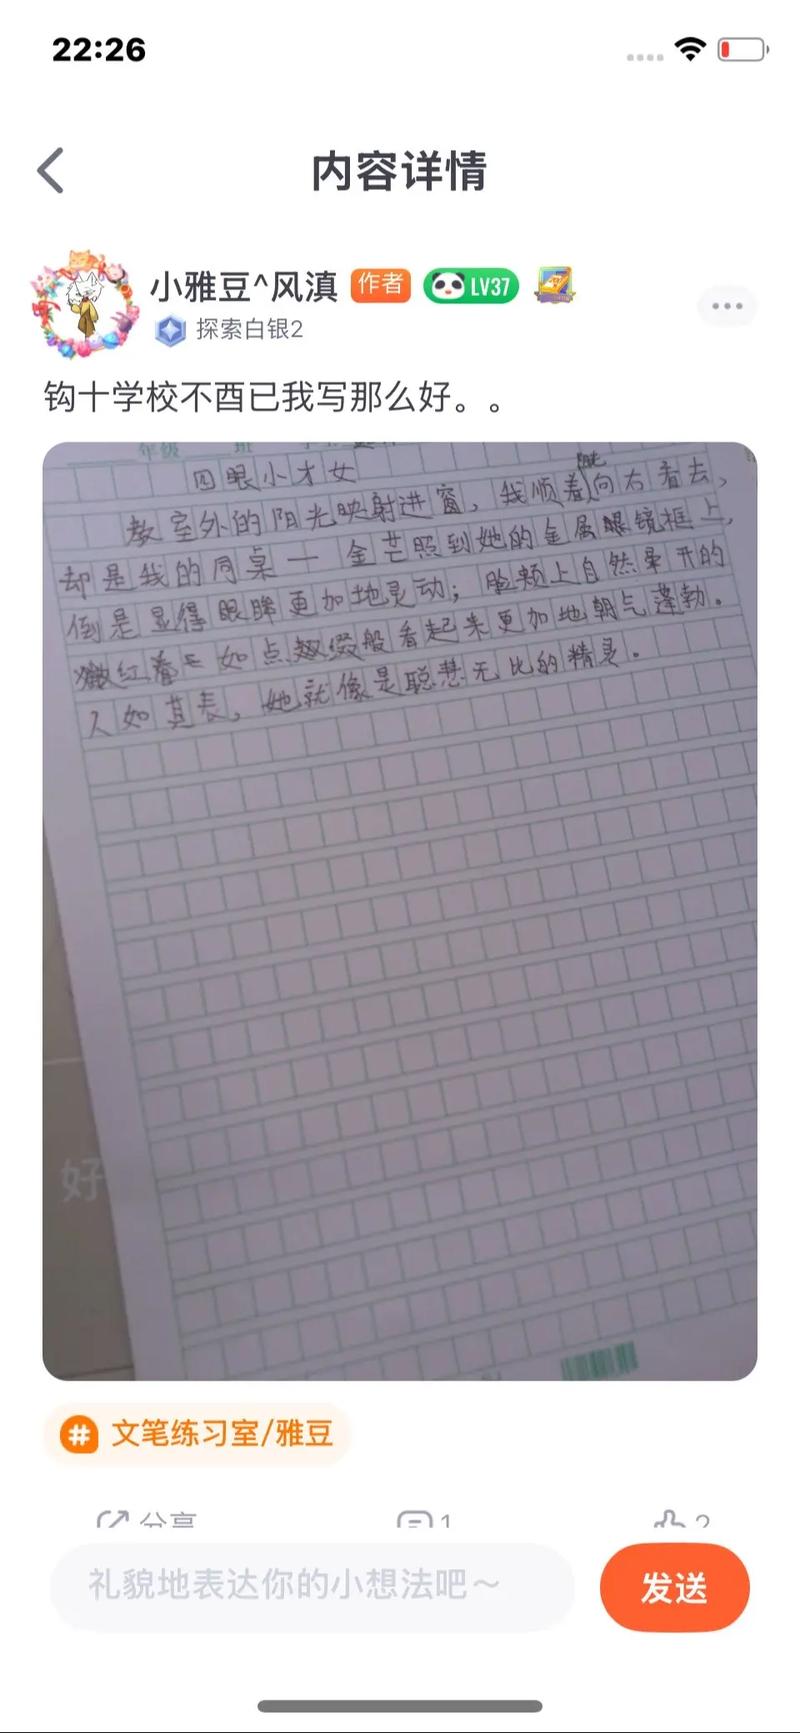 22:26
内容详情
小雅豆^风滇 作者 LV37
探索白银2
钩十学校不酉已我写那么好。。
年级 班
四眼小才女
教室外的阳光映射进窗，我顺着向右看去，
却是我的同桌一金芒照到她的金属眼镜框上，
倒是显得眼眸更加地灵动；脸颊上自然晕开的
嫩红 如点缀般看起来更加地朝气蓬勃。
人如其表，她就像是聪慧无比的精灵。
好
# 文笔练习室/雅豆
分享 1 2
礼貌地表达你的小想法吧～ 发送